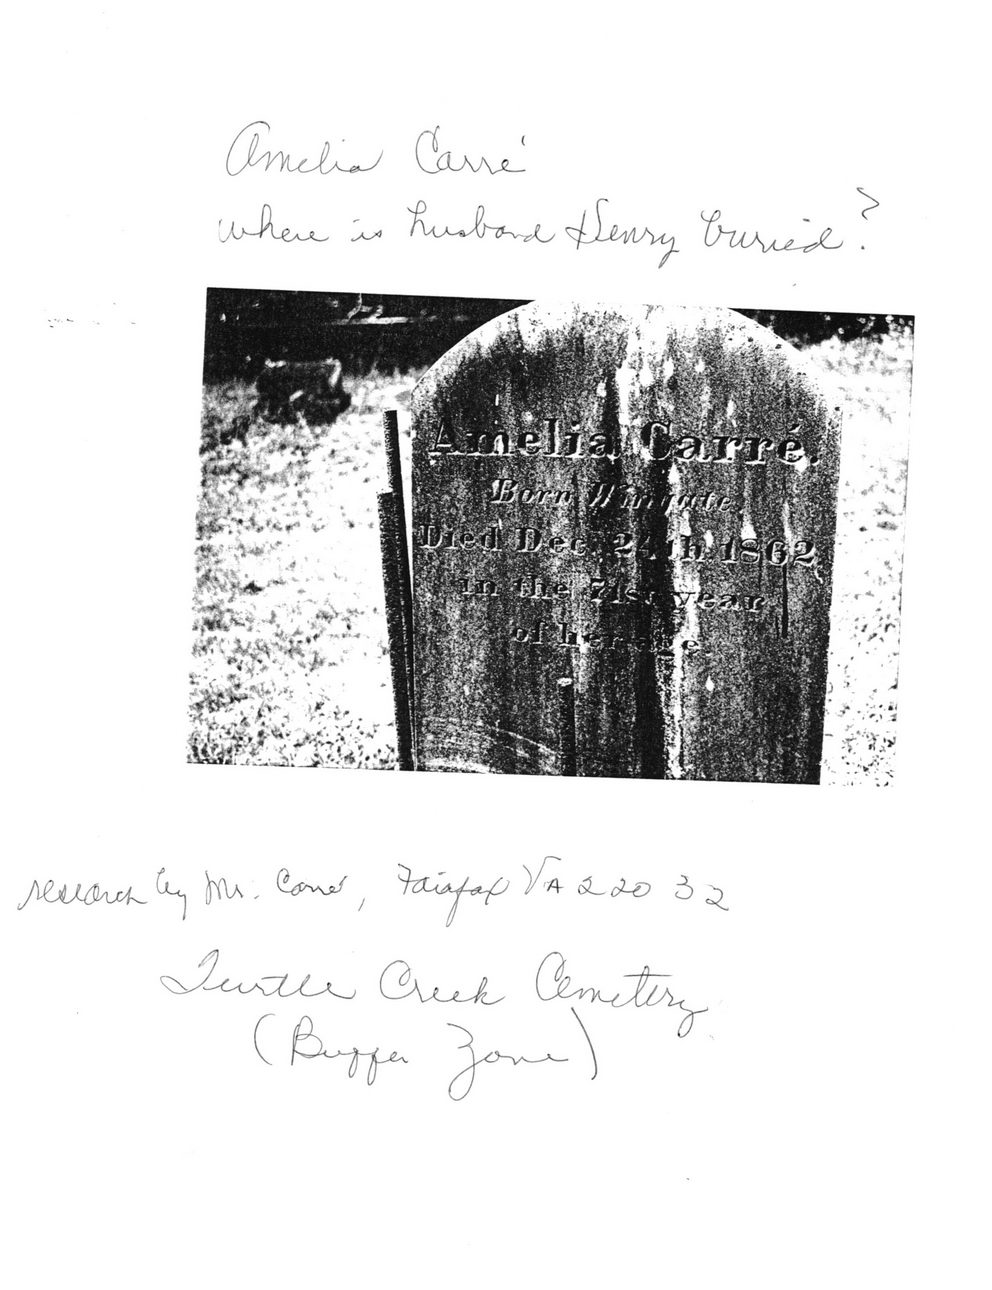 Amelia Carré
where is husband Henry buried?
Amelia Carré.
Born Wingate.
Died Dec. 24th 1862
in the 71st year
of her age.
research by Mr. Carré, Fairfax VA 22032
Turtle Creek Cemetery
(Buffer Zone)